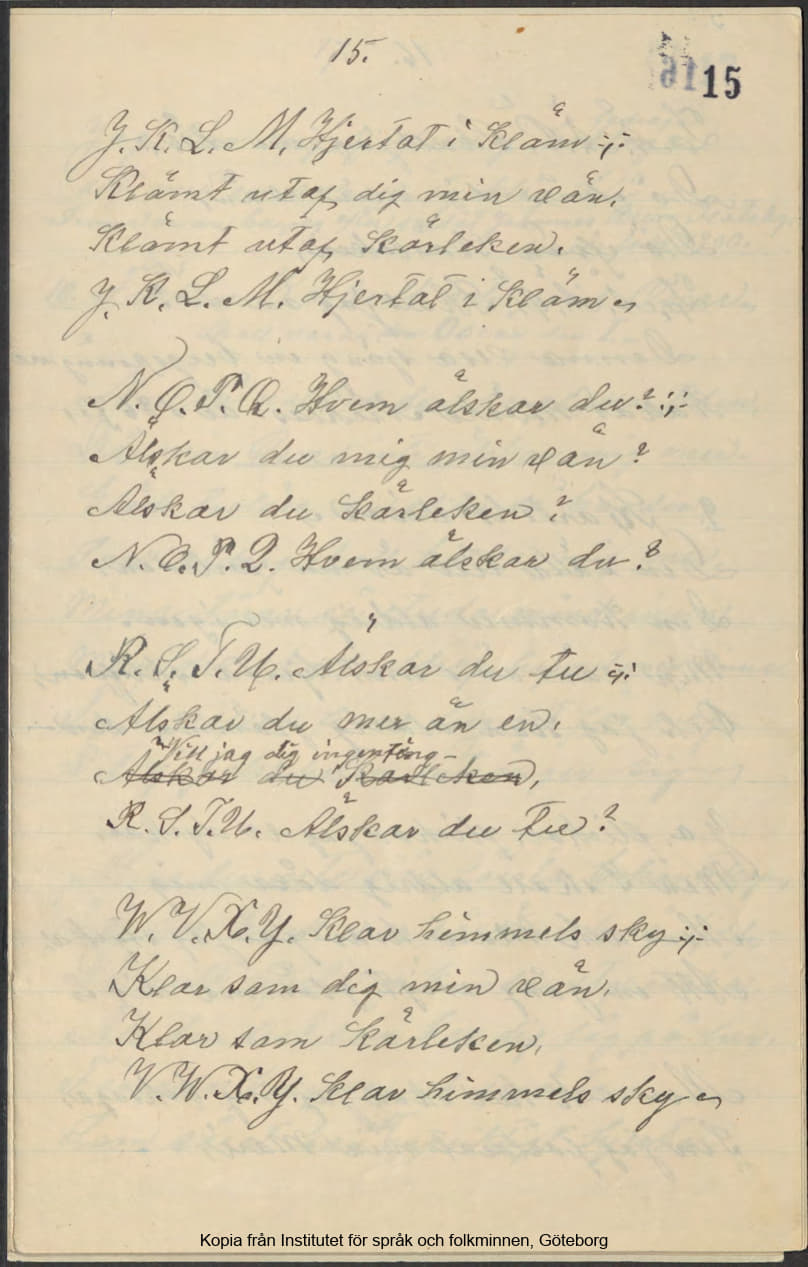 15.
15
J. K. L. M. Hjertat i Kläm :;:
Klämt utaf dig min vän.
Klämt utaf Kärleken.
J. K. L. M. Hjertat i Kläm
N. O. P. Q. Hvem älskar du? :;:
Älskar du mig min vän?
Älskar du Kärleken?
N. O. P. Q. Hvem älskar du?
R. S. T. U. Älskar du tu :;:
Älskar du mer än en.
Vill jag dig ingenting
Älskar du Kärleken,
R. S. T. U. Älskar du tu?
W. V. X. Y. Klar himmels sky :;:
Klar som dig min vän.
Klar som Kärleken.
V. W. X. Y. Klar himmels sky
Kopia från Institutet för språk och folkminnen, Göteborg